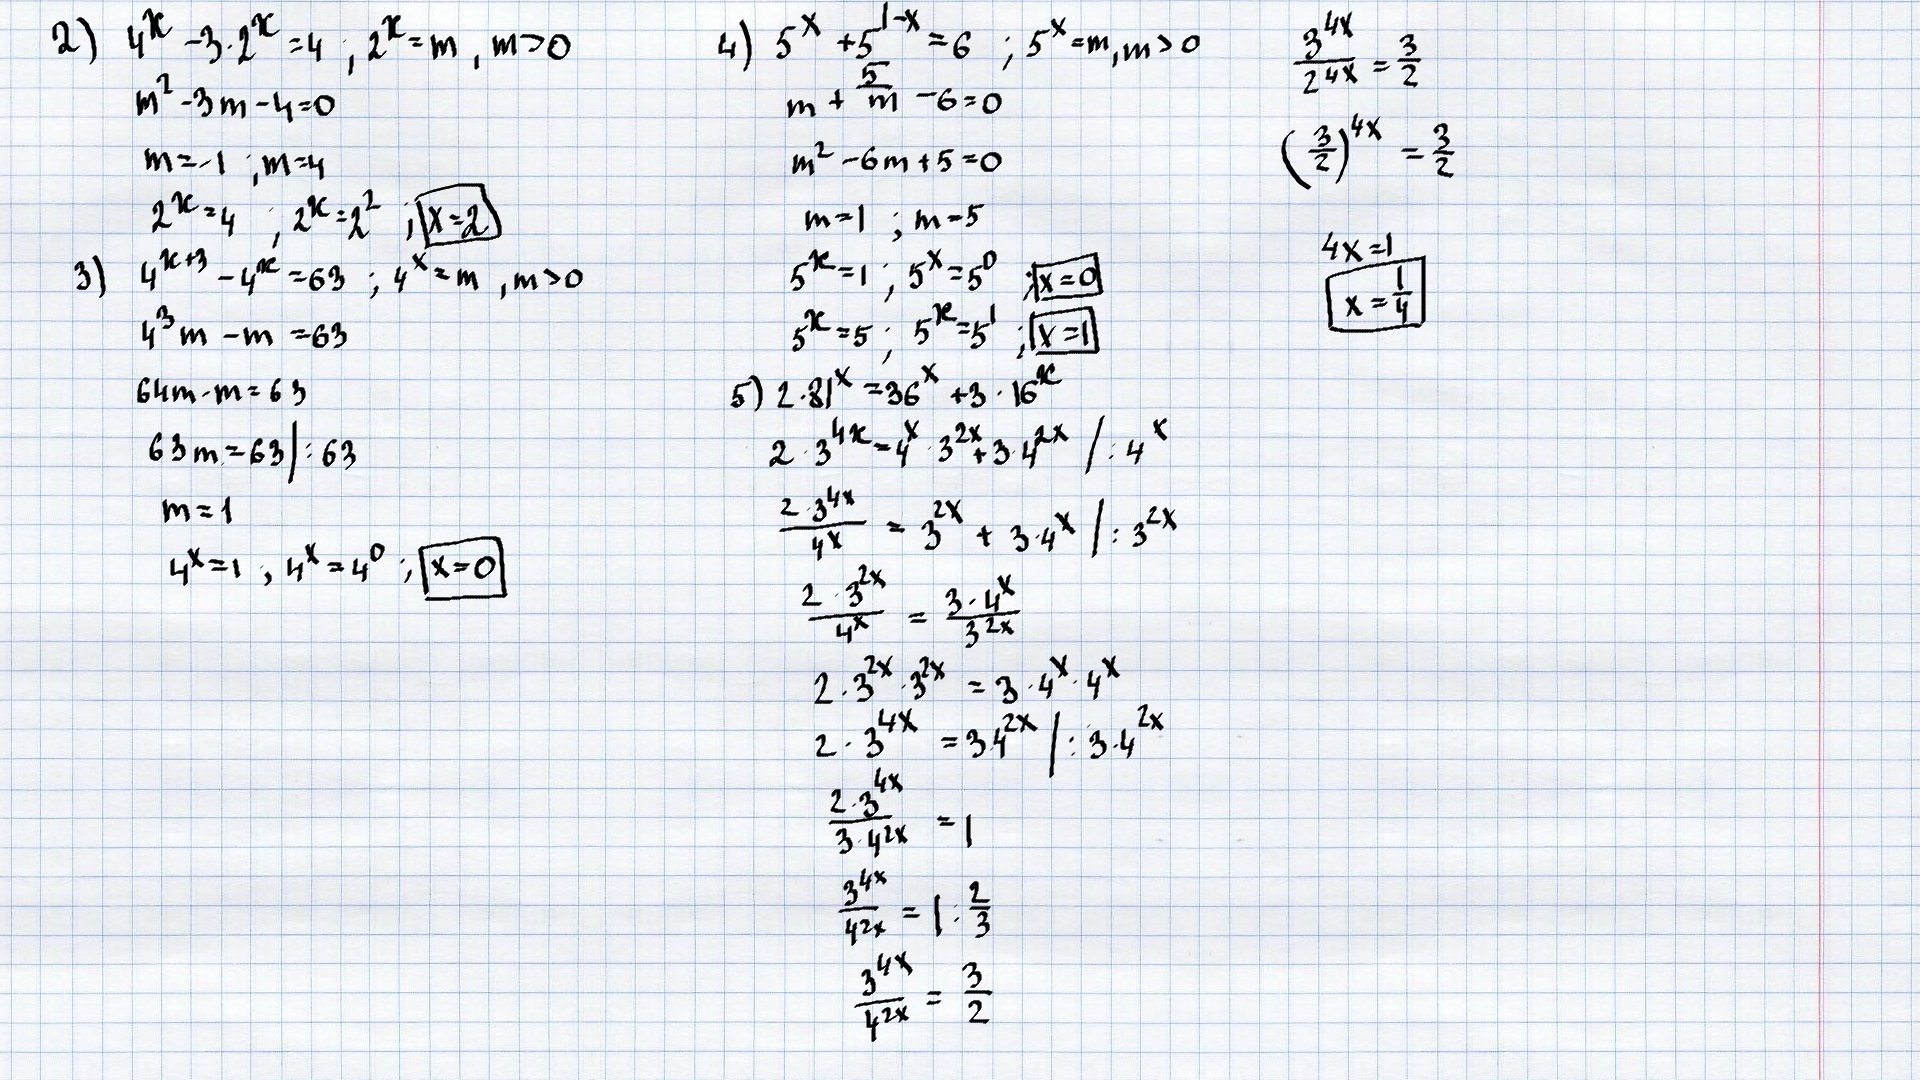 2) 4^x - 3·2^x = 4 ; 2^x = m , m > 0
m² - 3m - 4 = 0
m = -1 ; m = 4
2^x = 4 ; 2^x = 2² ; x = 2
3) 4^(x+3) - 4^x = 63 ; 4^x = m , m > 0
4³m - m = 63
64m - m = 63
63m = 63 | : 63
m = 1
4^x = 1 ; 4^x = 4^0 ; x = 0
4) 5^x + 5^(1-x) = 6 ; 5^x = m, m > 0
m + 5/m - 6 = 0
m² - 6m + 5 = 0
m = 1 ; m = 5
5^x = 1 ; 5^x = 5^0 ; x = 0
5^x = 5 ; 5^x = 5^1 ; x = 1
5) 2·81^x = 36^x + 3·16^x
2·3^(4x) = 4^x·3^(2x) + 3·4^(2x) / : 4^x
(2·3^(4x))/(4^x) = 3^(2x) + 3·4^x | : 3^(2x)
(2·3^(2x))/(4^x) = (3·4^x)/(3^(2x))
2·3^(2x)·3^(2x) = 3·4^x·4^x
2·3^(4x) = 3·4^(2x) | : 3·4^(2x)
(2·3^(4x))/(3·4^(2x)) = 1
(3^(4x))/(4^(2x)) = 1 : 2/3
(3^(4x))/(4^(2x)) = 3/2
(3^(4x))/(2^(4x)) = 3/2
(3/2)^(4x) = 3/2
4x = 1
x = 1/4